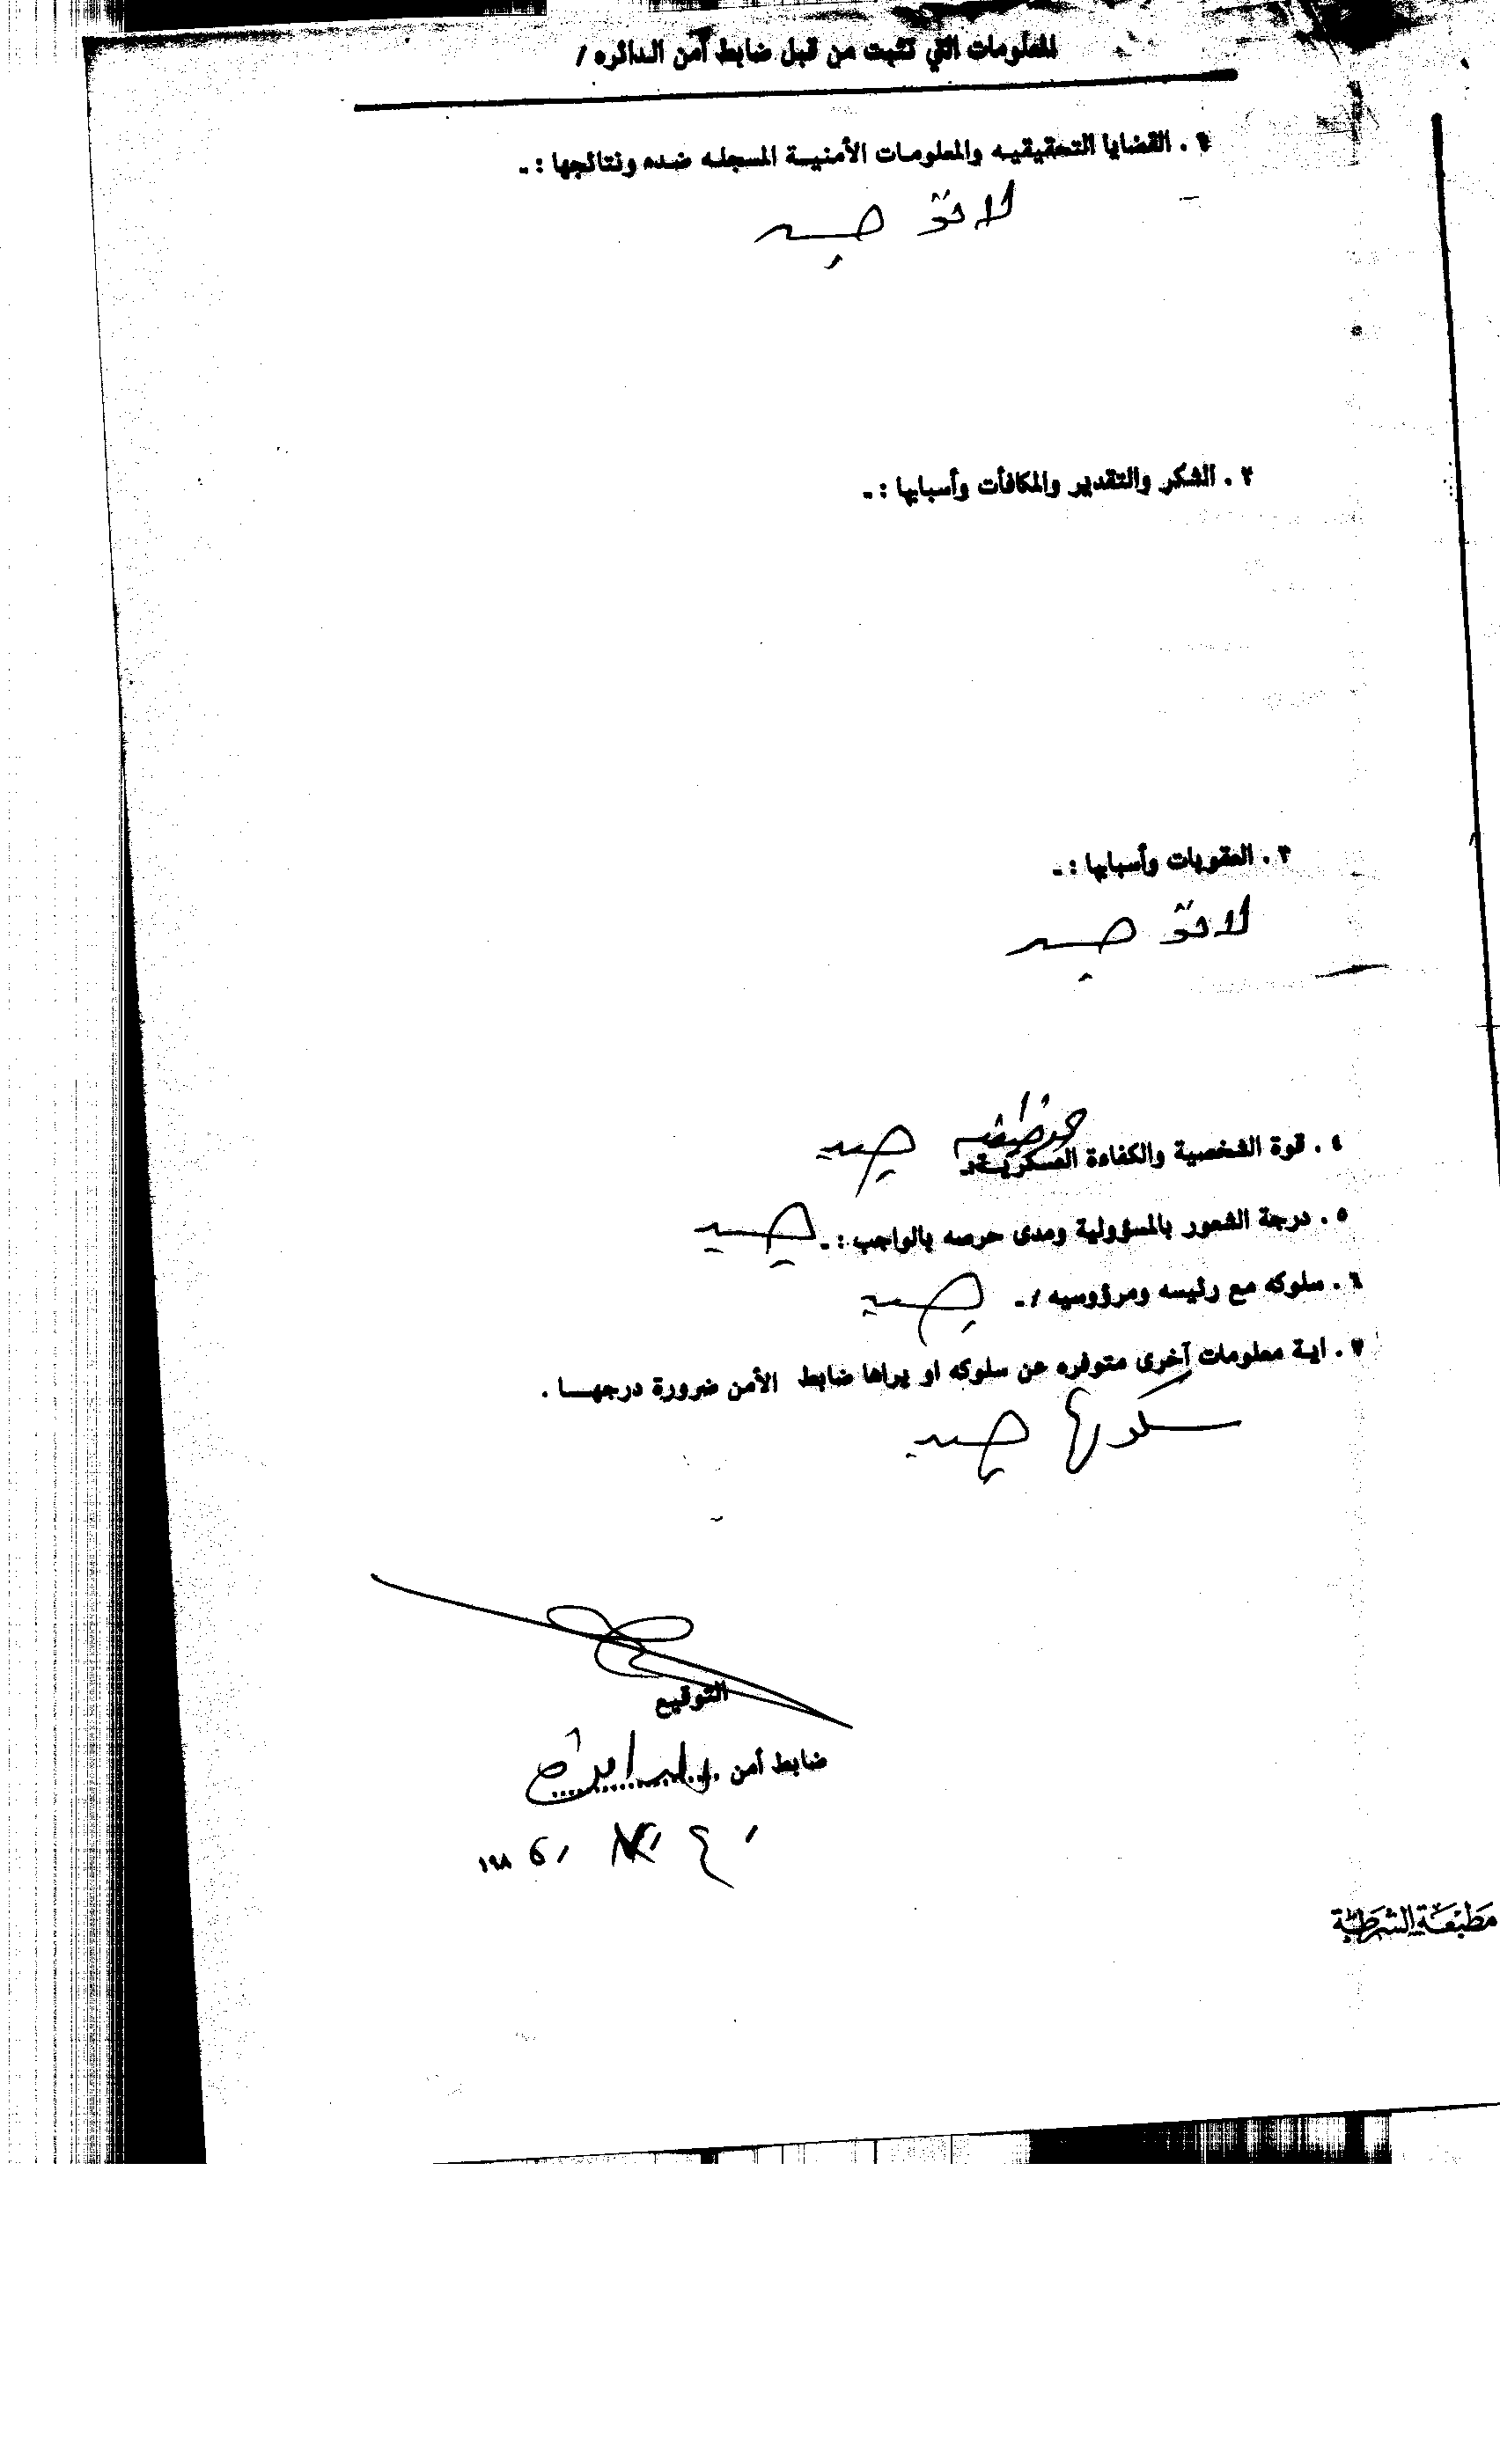 المعلومات التي تثبت من قبل ضابط أمن الدائره /
١ . القضايا التحقيقيه والمعلومات الأمنية المسجله ضده ونتائجها : ـ
٢ . الشكر والتقدير والمكافأت وأسبابها : ـ
٣ . العقوبات وأسبابها : ـ
٤ . قوة الشخصية والكفاءة العسكرية ـ جيد
٥ . درجة الشعور بالمسؤولية ومدى حرصه بالواجب : ـ جيد
٦ . سلوكه مع رئيسه ومرؤوسيه / ـ جيد
٧ . اية معلومات آخرى متوفره عن سلوكه او يراها ضابط الأمن ضرورة درجهـا .
جيد
التوقيع
ضابط أمن
١٩٨
مطبعة الشرطة